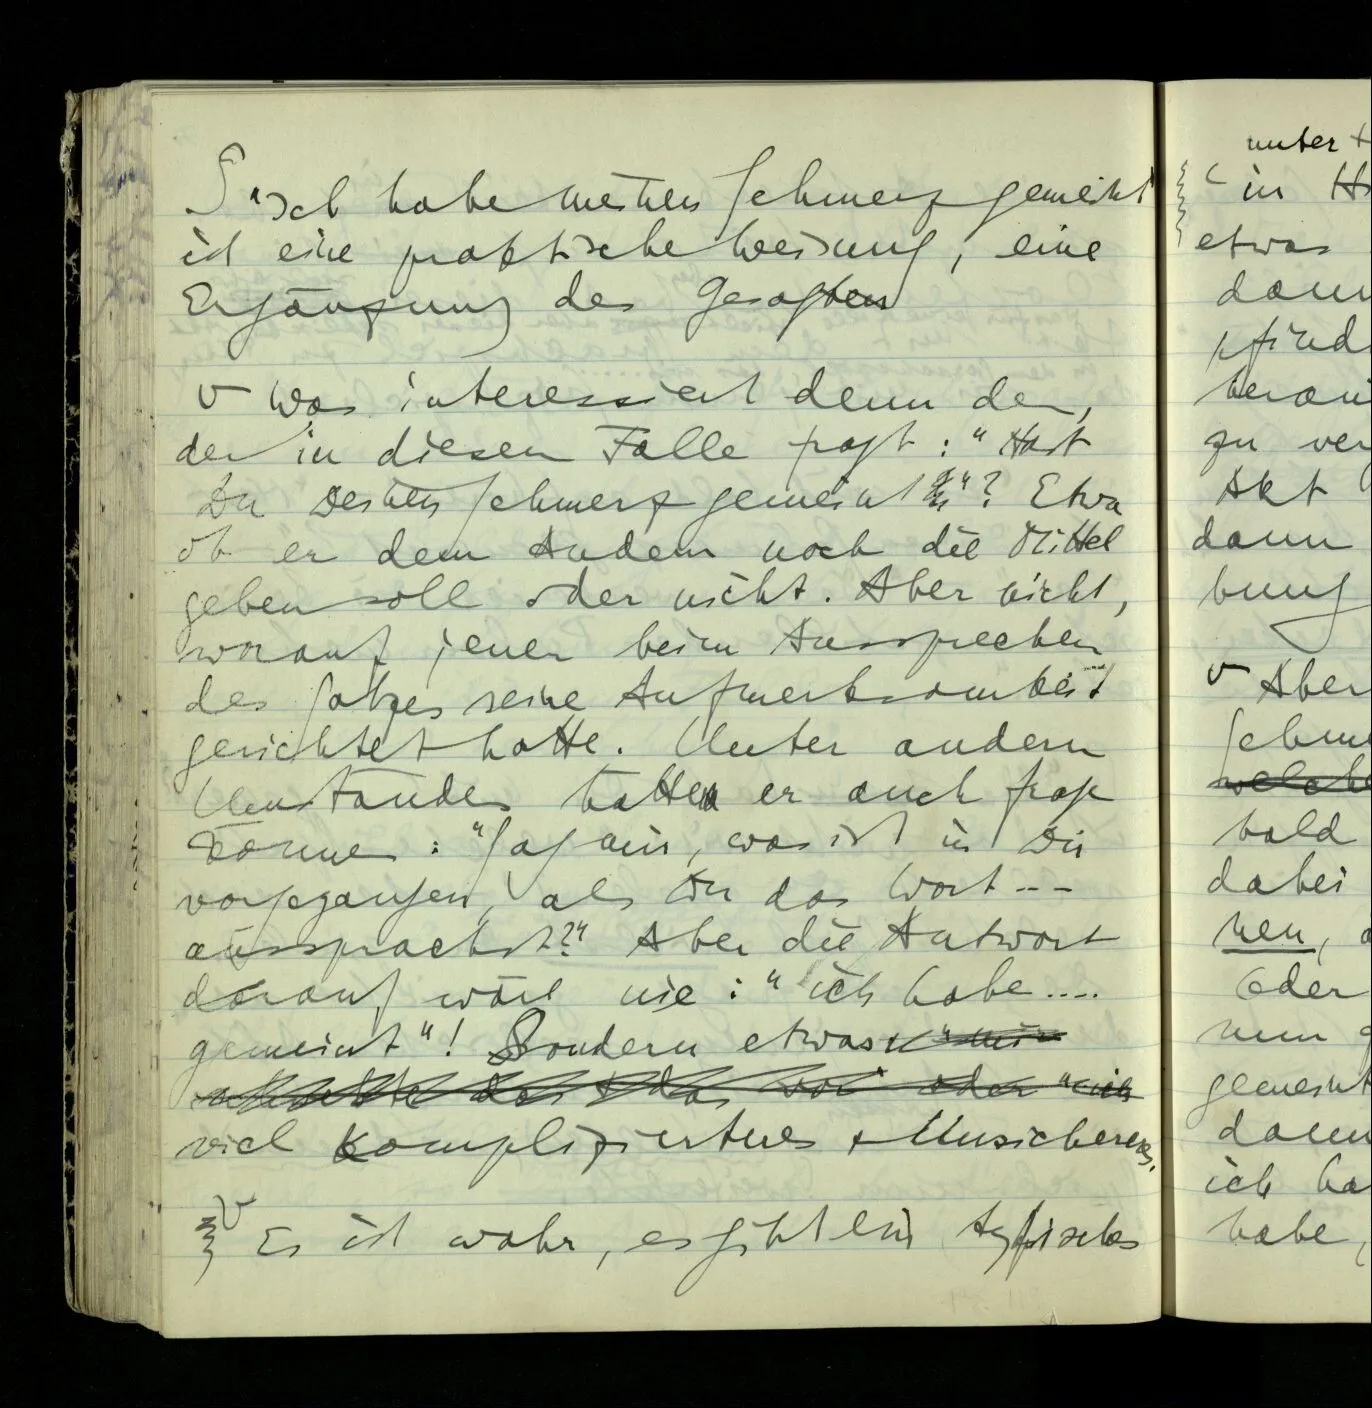 S "Ich habe meinen Schmerz gemeint"
ist eine praktische Weisung, eine
Ergänzung des Gesagten
∨ Was interessiert denn den,
der in diesem Falle fragt: "Hast
Du Deinen Schmerz gemeint"? Etwa
ob er dem Andern noch die Mittel
geben soll oder nicht. Aber nicht,
worauf jener beim Aussprechen
des Satzes seine Aufmerksamkeit
gerichtet hatte. Unter andern
Umständen hätte er auch fragen
können: "Sag mir, was ist in Dir
vorgegangen, als Du das Wort ---
aussprachst?" Aber die Antwort
darauf wäre nie: "ich habe ....
gemeint"! Sondern etwas
oder "ich
viel Komplizierteres + Unsichereres.
∨ Es ist wahr, es gibt ein typisches
unter +
in
etwas
dann
heraus
zu ver
Akt
dann
bung
∨ Aber
Schme
welche
bald
dabei
nen,
Oder
nun
gemeint
dann
ich ha
habe,